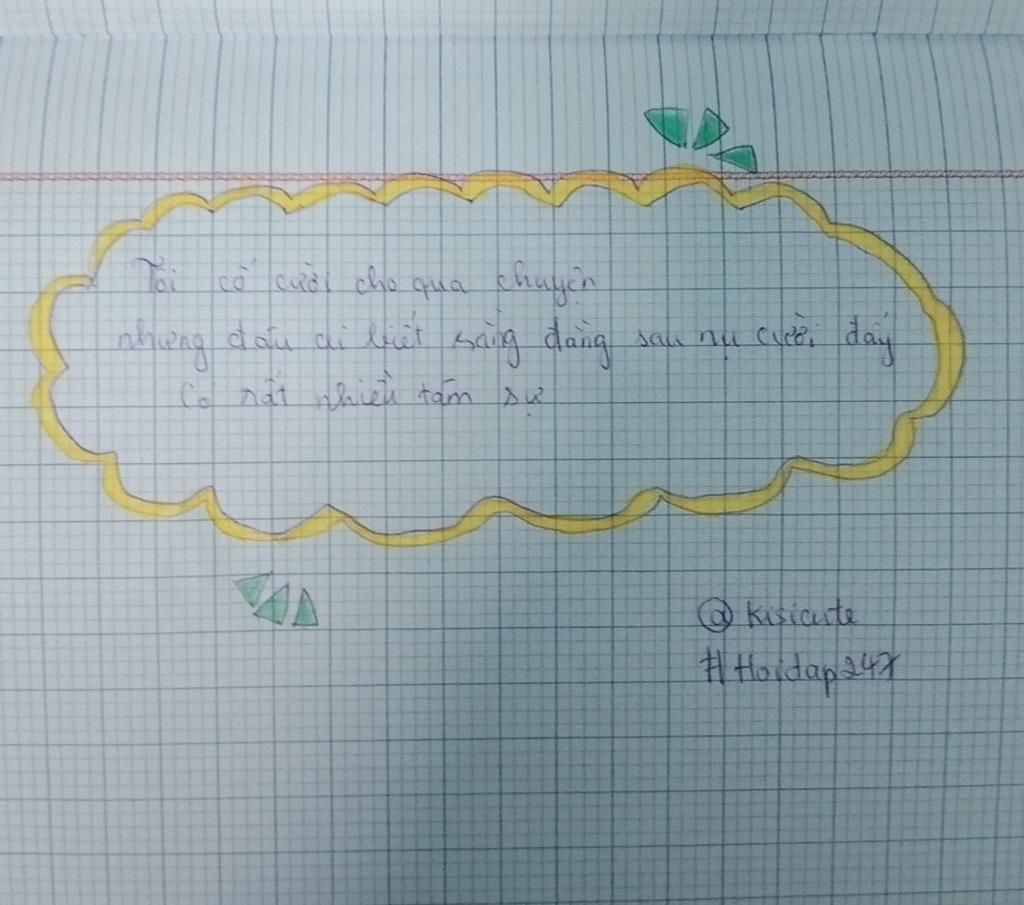 Tôi cố cười cho qua chuyện
nhưng đâu ai biết sằng đằng sau nụ cười đấy
Có rất nhiều tâm sự
@ kisicute
# Hoidap247